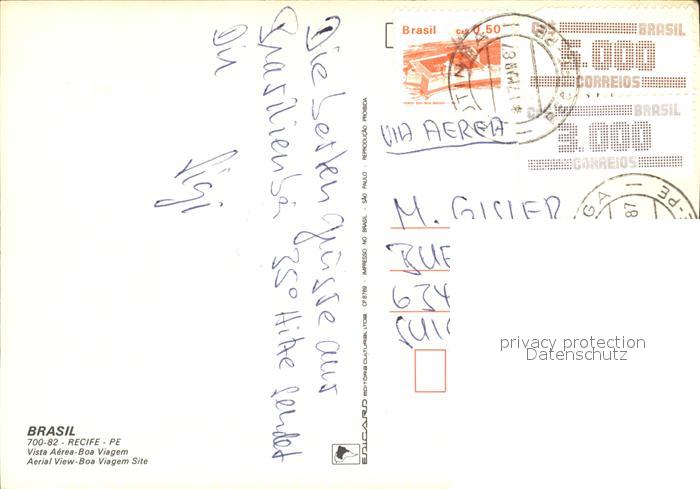 Die besten Grüsse aus
Brasilien bei 35° Hitze sendet
Dir
BRASIL
700-82 - RECIFE - PE
Vista Aérea-Boa Viagem
Aerial View-Boa Viagem Site
EDICARD EDITÔRA CULTURAL LTDA. CP 8769 IMPRESSO NO BRASIL - SÃO PAULO - REPRODUÇÃO PROIBIDA
Brasil Cz$ 0,50
BRASIL
5.000
CORREIOS
BRASIL
3.000
CORREIOS
VIA AEREA
M. GISLER
634
privacy protection
Datenschutz